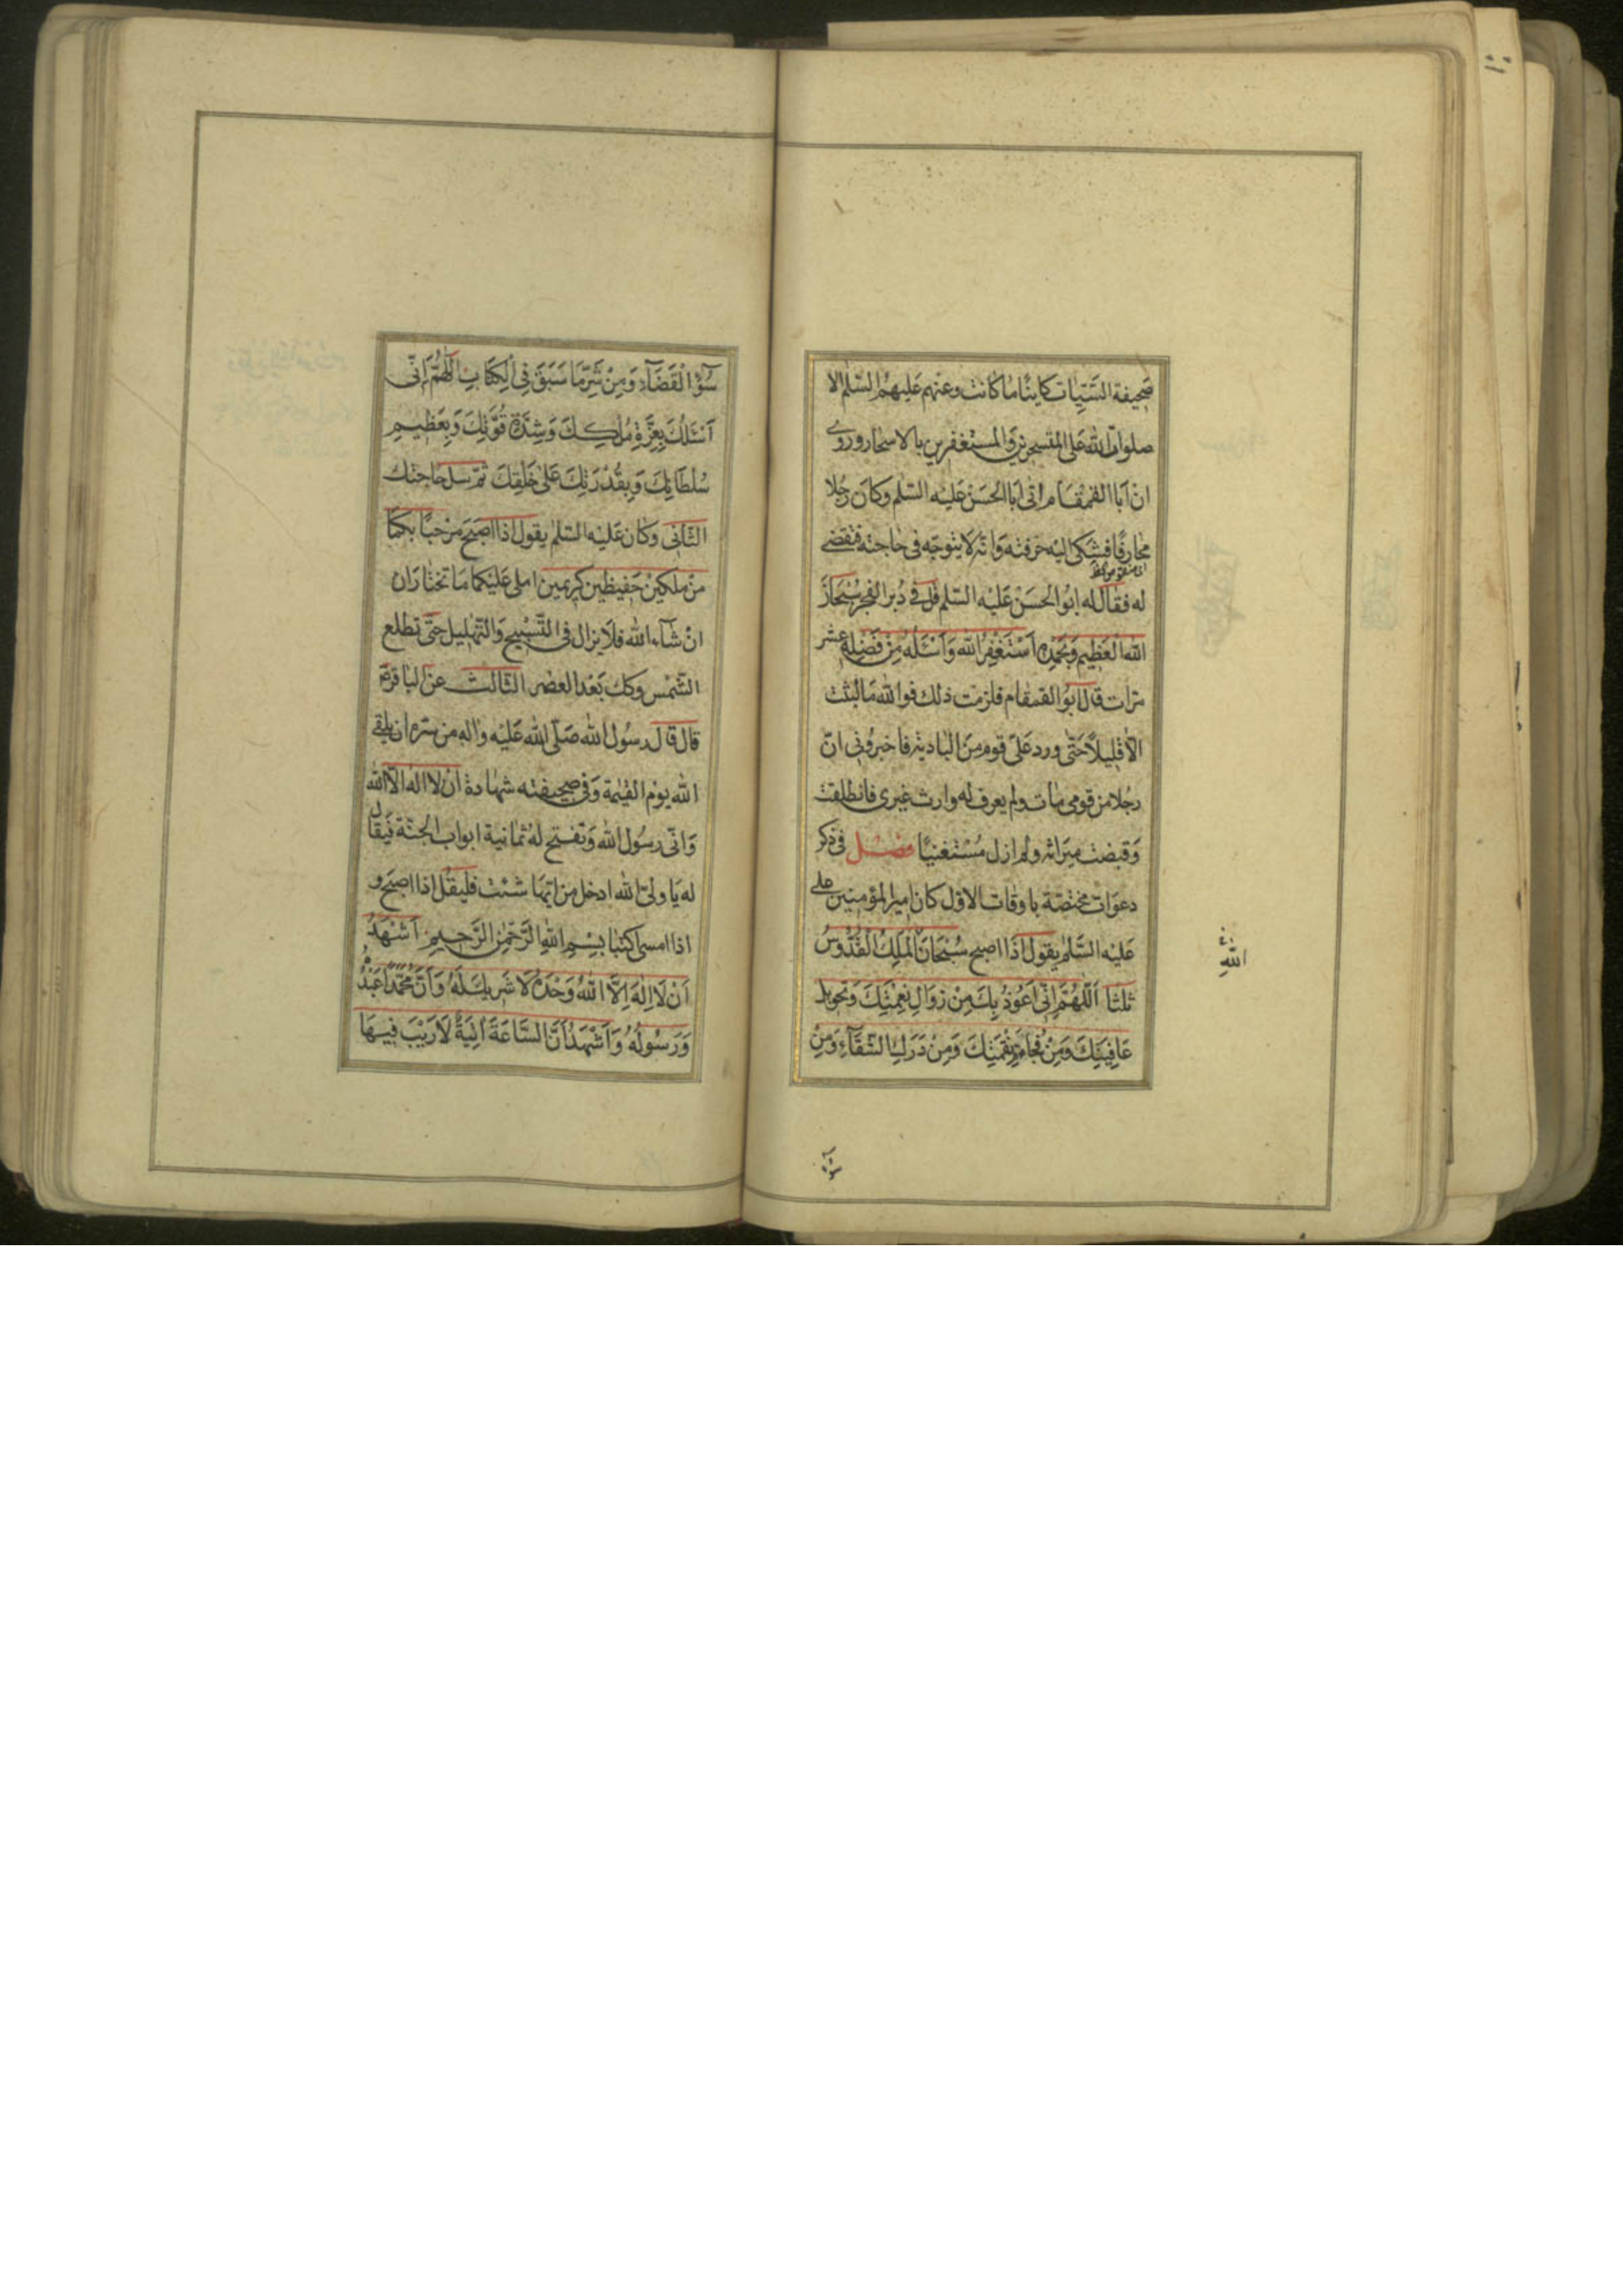 صحيفة السّيّات كاينًا ما كانت وعنهم عليهم السّلم الا
صلوات الله على المتسحرين والمستغفرين بالاسحار وروى
انّ ابا القمقام اتى ابا الحسن عليه السّلم وكان رجلا
محارفًا فشكى اليه حرفته وانّه لا يتوجّه فى حاجته فتقضى
له فقال له ابو الحسن عليه السّلم قل فى دبر الفجر سُبْحَانَ
اللهِ الْعَظِيمِ وَبِحَمْدِهِ اَسْتَغْفِرُ اللهَ وَاَسْئَلُهُ مِنْ فَضْلِهِ عشر
مرّات قال ابو القمقام فلزمت ذلك فوالله ما لبثت
الّا قليلاً حتّى ورد علىّ قوم من البادية فاخبرونى انّ
رجلا من قومى مات ولم يعرف له وارث غيرى فانطلقت
وقبضت ميراثه ولم ازل مستغنيًا فصل فى ذكر
دعوات مختصّة باوقات الاوّل كان امير المؤمنين على
عليه السّلم يقول اذا اصبح سُبْحَانَ الْمَلِكِ الْقُدُّوسِ
ثلثا اَللّهُمَّ اِنّى اَعُوذُ بِكَ مِنْ زَوَالِ نِعْمَتِكَ وَتَحْوِيلِ
عَافِيَتِكَ وَمِنْ فُجْأَةِ نِقْمَتِكَ وَمِنْ دَرَكِ الشَّقَآءِ وَمِنْ
الله
سُوْءِ الْقَضَآءِ وَمِنْ شَرِّ مَا سَبَقَ فِى الْكِتَابِ اَللّهُمَّ اِنّى
اَسْئَلُكَ بِعِزَّةِ مُلْكِكَ وَشِدَّةِ قُوَّتِكَ وَبِعَظِيمِ
سُلْطَانِكَ وَبِقُدْرَتِكَ عَلى خَلْقِكَ ثمّ سل حاجتك
الثّانى وكان عليه السّلم يقول اذا اصبح مرحبًا بكما
من ملكين حفيظين كريمين املى عليكما ما تختاران
ان شآء الله فلا يزال فى التّسبيح والتّهليل حتّى تطلع
الشّمس وكك بعد العصر الثّالث عن الباقر ع
قال قال رسول الله صلّى الله عليه واله من سرّه ان يلقى
الله يوم القيٰمة وفى صحيفته شهادة ان لا اله الّا الله
وانّى رسول الله وتفتح له ثمانية ابواب الجنّة فيقال
له يا ولىّ الله ادخل من ايّها شئت فليقل اذا اصبح و
اذا امسى اكتبا بِسْمِ اللهِ الرَّحْمنِ الرَّحِيمِ اَشْهَدُ
اَنْ لَا اِلهَ اِلَّا اللهُ وَحْدَهُ لَا شَرِيكَ لَهُ وَاَنَّ مُحَمَّدًا عَبْدُهُ
وَرَسُولُهُ وَاَشْهَدُ اَنَّ السَّاعَةَ اتِيَةٌ لَا رَيْبَ فِيهَا